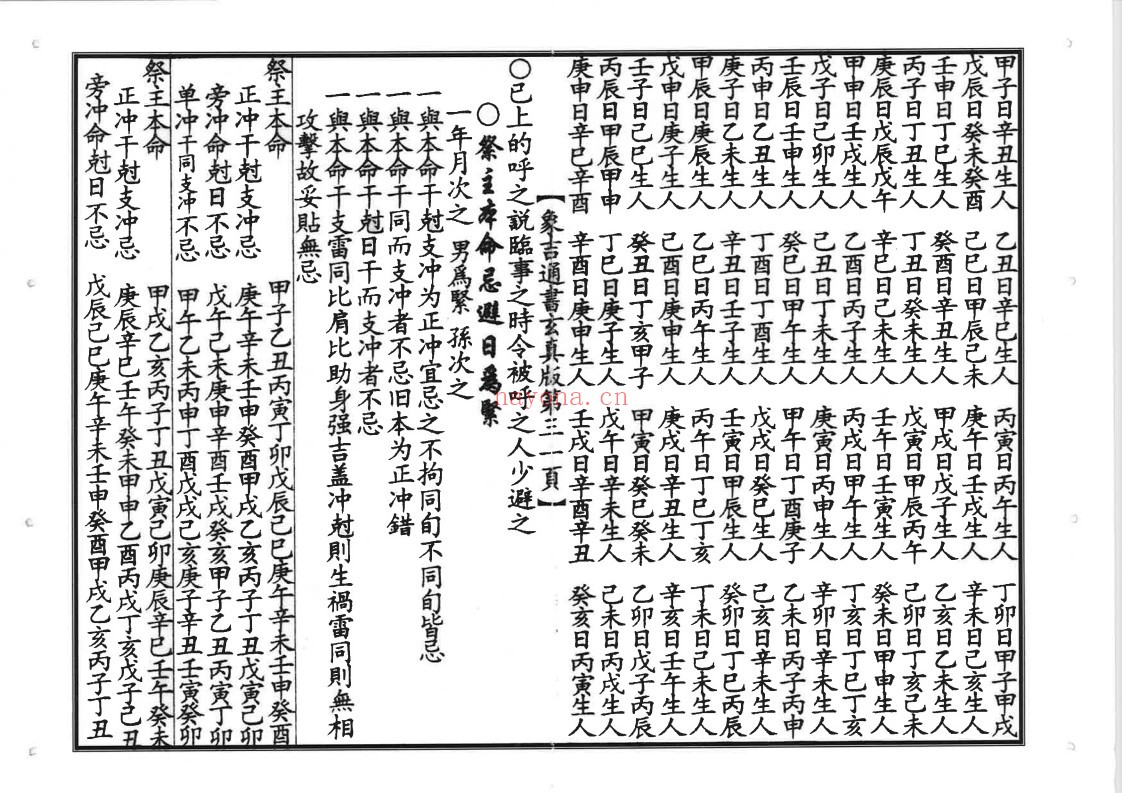 甲子日辛丑生人 乙丑日辛巳生人 丙寅日丙午生人 丁卯日甲子甲戌
戊辰日癸未癸酉 己巳日甲辰己未 庚午日戊戌生人 辛未日己亥生人
壬申日丁巳生人 癸酉日辛丑生人 甲戌日戊子生人 乙亥日乙未生人
丙子日丁丑生人 丁丑日癸未生人 戊寅日甲辰丙午 己卯日丁亥己未
庚辰日戊辰戊午 辛巳日己未生人 壬午日壬寅生人 癸未日甲申生人
甲申日壬戌生人 乙酉日丙子生人 丙戌日甲午生人 丁亥日丁巳丁亥
戊子日己卯生人 己丑日丁未生人 庚寅日丙申生人 辛卯日辛未生人
壬辰日壬申生人 癸巳日甲午生人 甲午日丁酉庚子 乙未日丙子丙申
丙申日乙丑生人 丁酉日丁酉生人 戊戌日癸巳生人 己亥日辛未生人
庚子日乙未生人 辛丑日壬子生人 壬寅日甲辰生人 癸卯日丁巳丙辰
甲辰日庚辰生人 乙巳日丙午生人 丙午日丁巳丁亥 丁未日己未生人
戊申日庚子生人 己酉日庚申生人 庚戌日辛丑生人 辛亥日壬午生人
壬子日己巳生人 癸丑日丁亥甲子 甲寅日癸巳癸未 乙卯日戊子丙辰
丙辰日甲辰甲申 丁巳日庚子生人 戊午日辛未生人 己未日丙戌生人
庚申日辛巳辛酉 辛酉日庚申生人 壬戌日辛酉辛丑 癸亥日丙寅生人
【象吉通書玄真版第三一頁】
○已上的呼之説臨事之時令被呼之人少避之
○祭主本命忌避日爲緊
一年月次之 男爲緊 孫次之
一與本命干尅支冲为正冲宜忌之不拘同旬不同旬皆忌
一與本命干同而支冲者不忌旧本为正冲錯
一與本命干尅日干而支冲者不忌
一與本命干支雷同比肩比助身强吉盖冲尅則生禍雷同則無相
攻擊故妥貼無忌
祭主本命 甲子乙丑丙寅丁卯戊辰己巳庚午辛未壬申癸酉
正冲干尅支冲忌 庚午辛未壬申癸酉甲戌乙亥丙子丁丑戊寅己卯
旁冲命尅日不忌 戊午己未庚申辛酉壬戌癸亥甲子乙丑丙寅丁卯
单冲干同支冲不忌 甲午乙未丙申丁酉戊戌己亥庚子辛丑壬寅癸卯
祭主本命 甲戌乙亥丙子丁丑戊寅己卯庚辰辛巳壬午癸未
正冲干尅支冲忌 庚辰辛巳壬午癸未甲申乙酉丙戌丁亥戊子己丑
旁冲命尅日不忌 戊辰己巳庚午辛未壬申癸酉甲戌乙亥丙子丁丑
nayona.cn